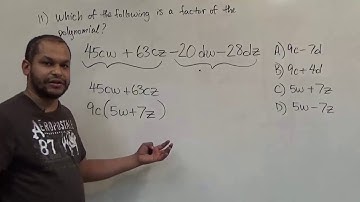 11) Which of the following is a factor of the
polynomial?
45cw + 63cz - 20dw - 28dz
45cw + 63cz
9c(5w+7z)
A) 9c - 7d
B) 9c + 4d
C) 5w + 7z
D) 5w - 7z
AEROPOSTALE
87